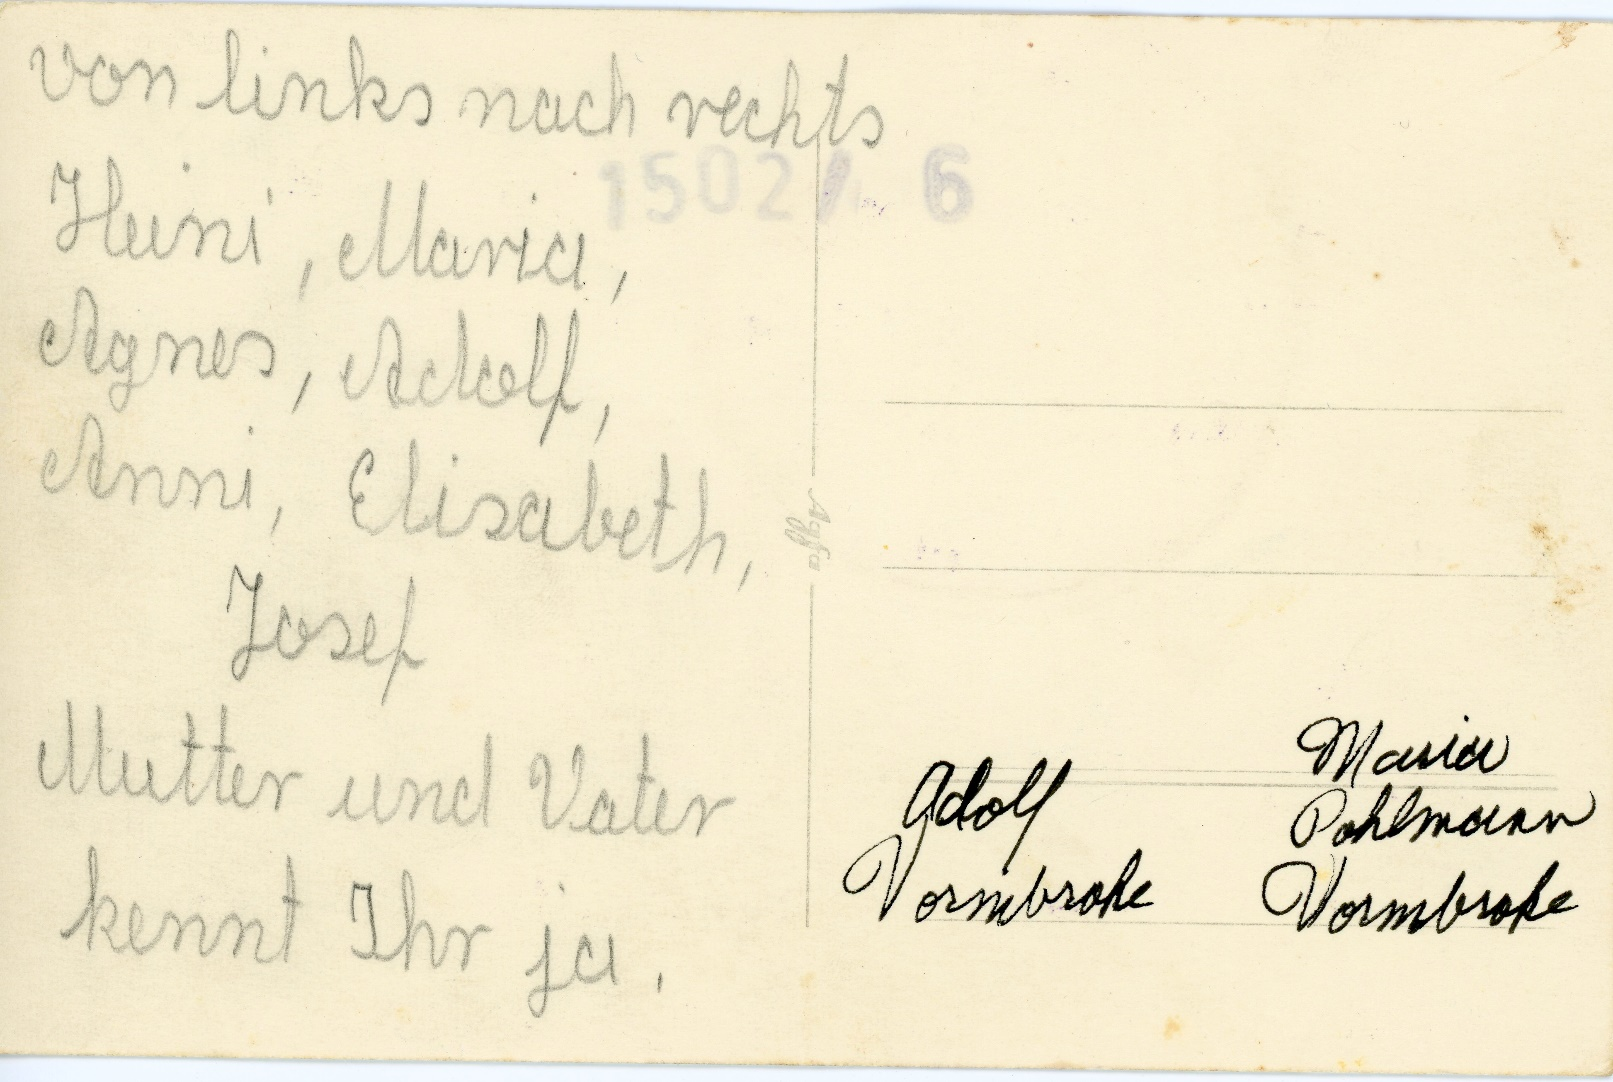 von links nach rechts
Heini, Maria,
Agnes, Adolf,
Anni, Elisabeth,
Josef
Mutter und Vater
kennt Ihr ja.
15021 6
Agfa
Adolf
Vormbroke
Maria
Pohlmann
Vormbroke